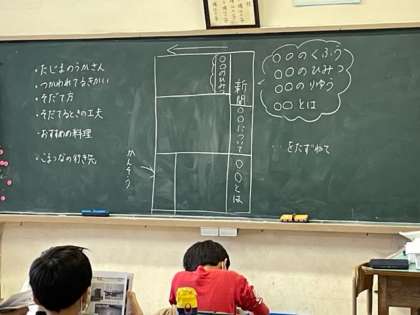 ・たじまのうかさん
・つかわれてるきかい
・そだて方
・そだてるときの工夫
・おすすめ料理
・こまつなの行き先
かんそう
〇〇のひみつ
新聞
〇〇について
〇〇とは
〇〇のくふう
〇〇のひみつ
〇〇のりゆう
〇〇とは
をたずねて